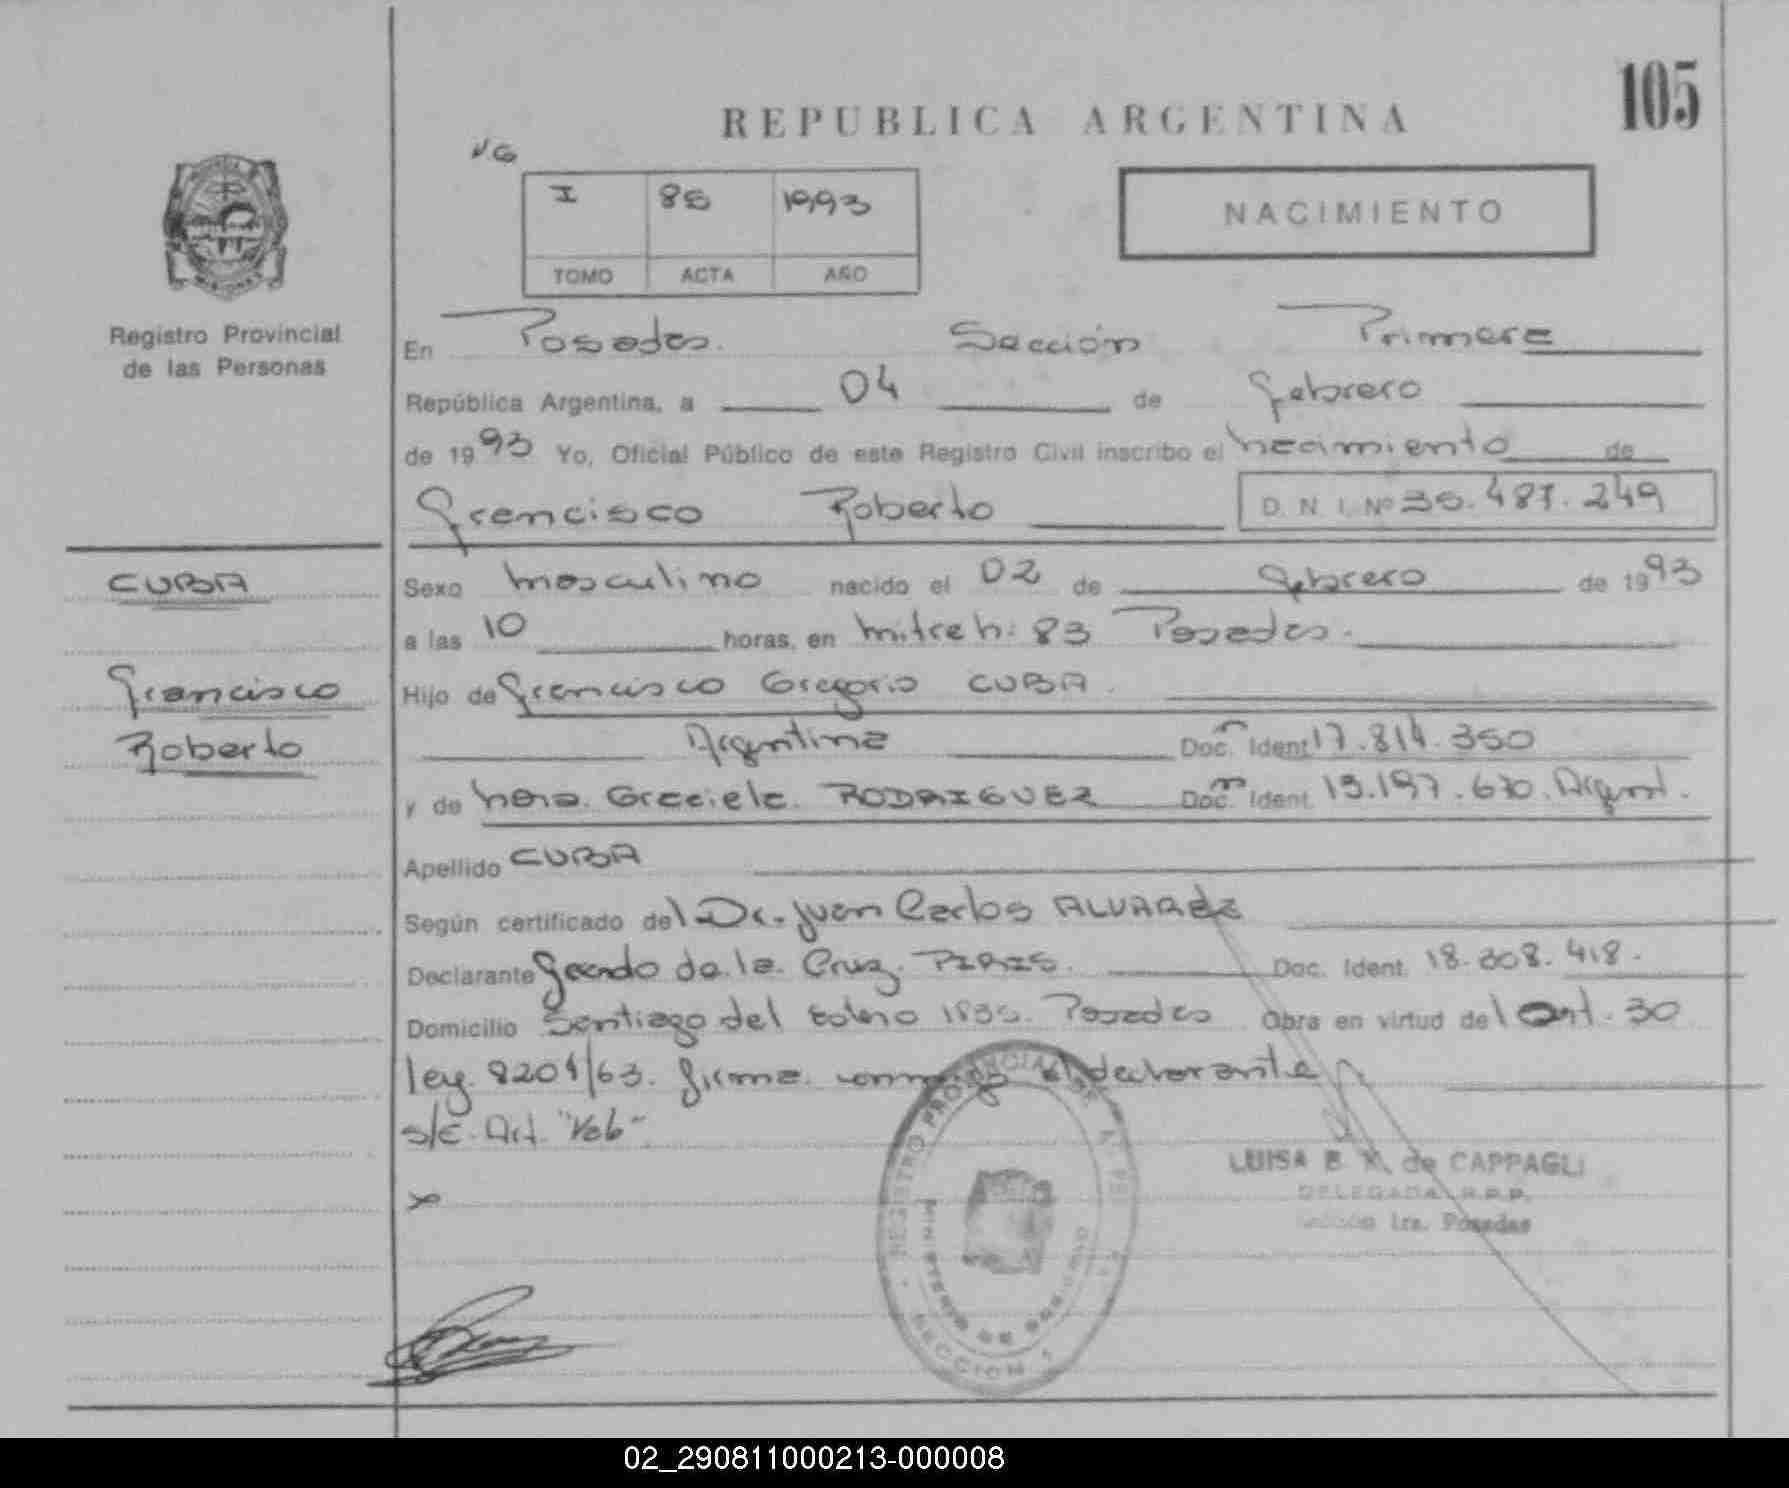 105
REPUBLICA ARGENTINA
NG
I 85 1993
TOMO ACTA AÑO
NACIMIENTO
Registro Provincial
de las Personas
En Posadas. Sección Primera
República Argentina, a 04 de febrero
de 1993 Yo, Oficial Público de este Registro Civil inscribo el nacimiento de
Francisco Roberto D. N. I. Nº 35.487.249
CUBA
Francisco
Roberto
Sexo masculino nacido el 02 de febrero de 1993
a las 10 horas, en Mitre n: 83 Posadas.
Hijo de Francisco Gregorio CUBA.
Argentina Doc. Ident 17.814.350
y de Nora. Graciela. RODRIGUEZ Doc. Ident. Argent.
Apellido CUBA
Según certificado del Dr. Juan Carlos ALVAREZ
Declarante de la Cruz. Doc. Ident. 18.808.418.
Domicilio Santiago del Estero 1835. Posadas Obra en virtud del Art. 30
ley. 8204/63. firma conmigo el declarante
s/c. Art.
REGISTRO PROVINCIAL DE
MINISTERIO DE GOBIERNO
SECCION 1
LUISA E. M. de CAPPAGLI
DELEGADA R.P.P.
Sección 1ra. Posadas
02_290811000213-000008